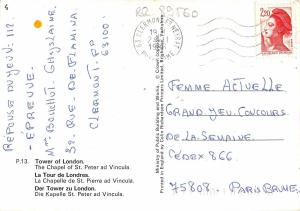 R2 89560
REPONSE DU JEU: 112
- EPREUVE -
Mme Bouchut Ghyslaine
39. RUE. DE. FLAMINA
CLERMONT. Fd
63100
P.13. Tower of London.
The Chapel of St. Peter ad Vincula.
La Tour de Londres.
La Chapelle de St. Pierre ad Vincula.
Der Tower zu London.
Die Kapelle St. Peter ad Vincula.
Ministry of Public Building and Works.
2,20
FEMME ACTUELLE
GRAND JEU CONCOURS
DE LA SEMAINE.
CEDEX 866
75808. PARIS BRUNE